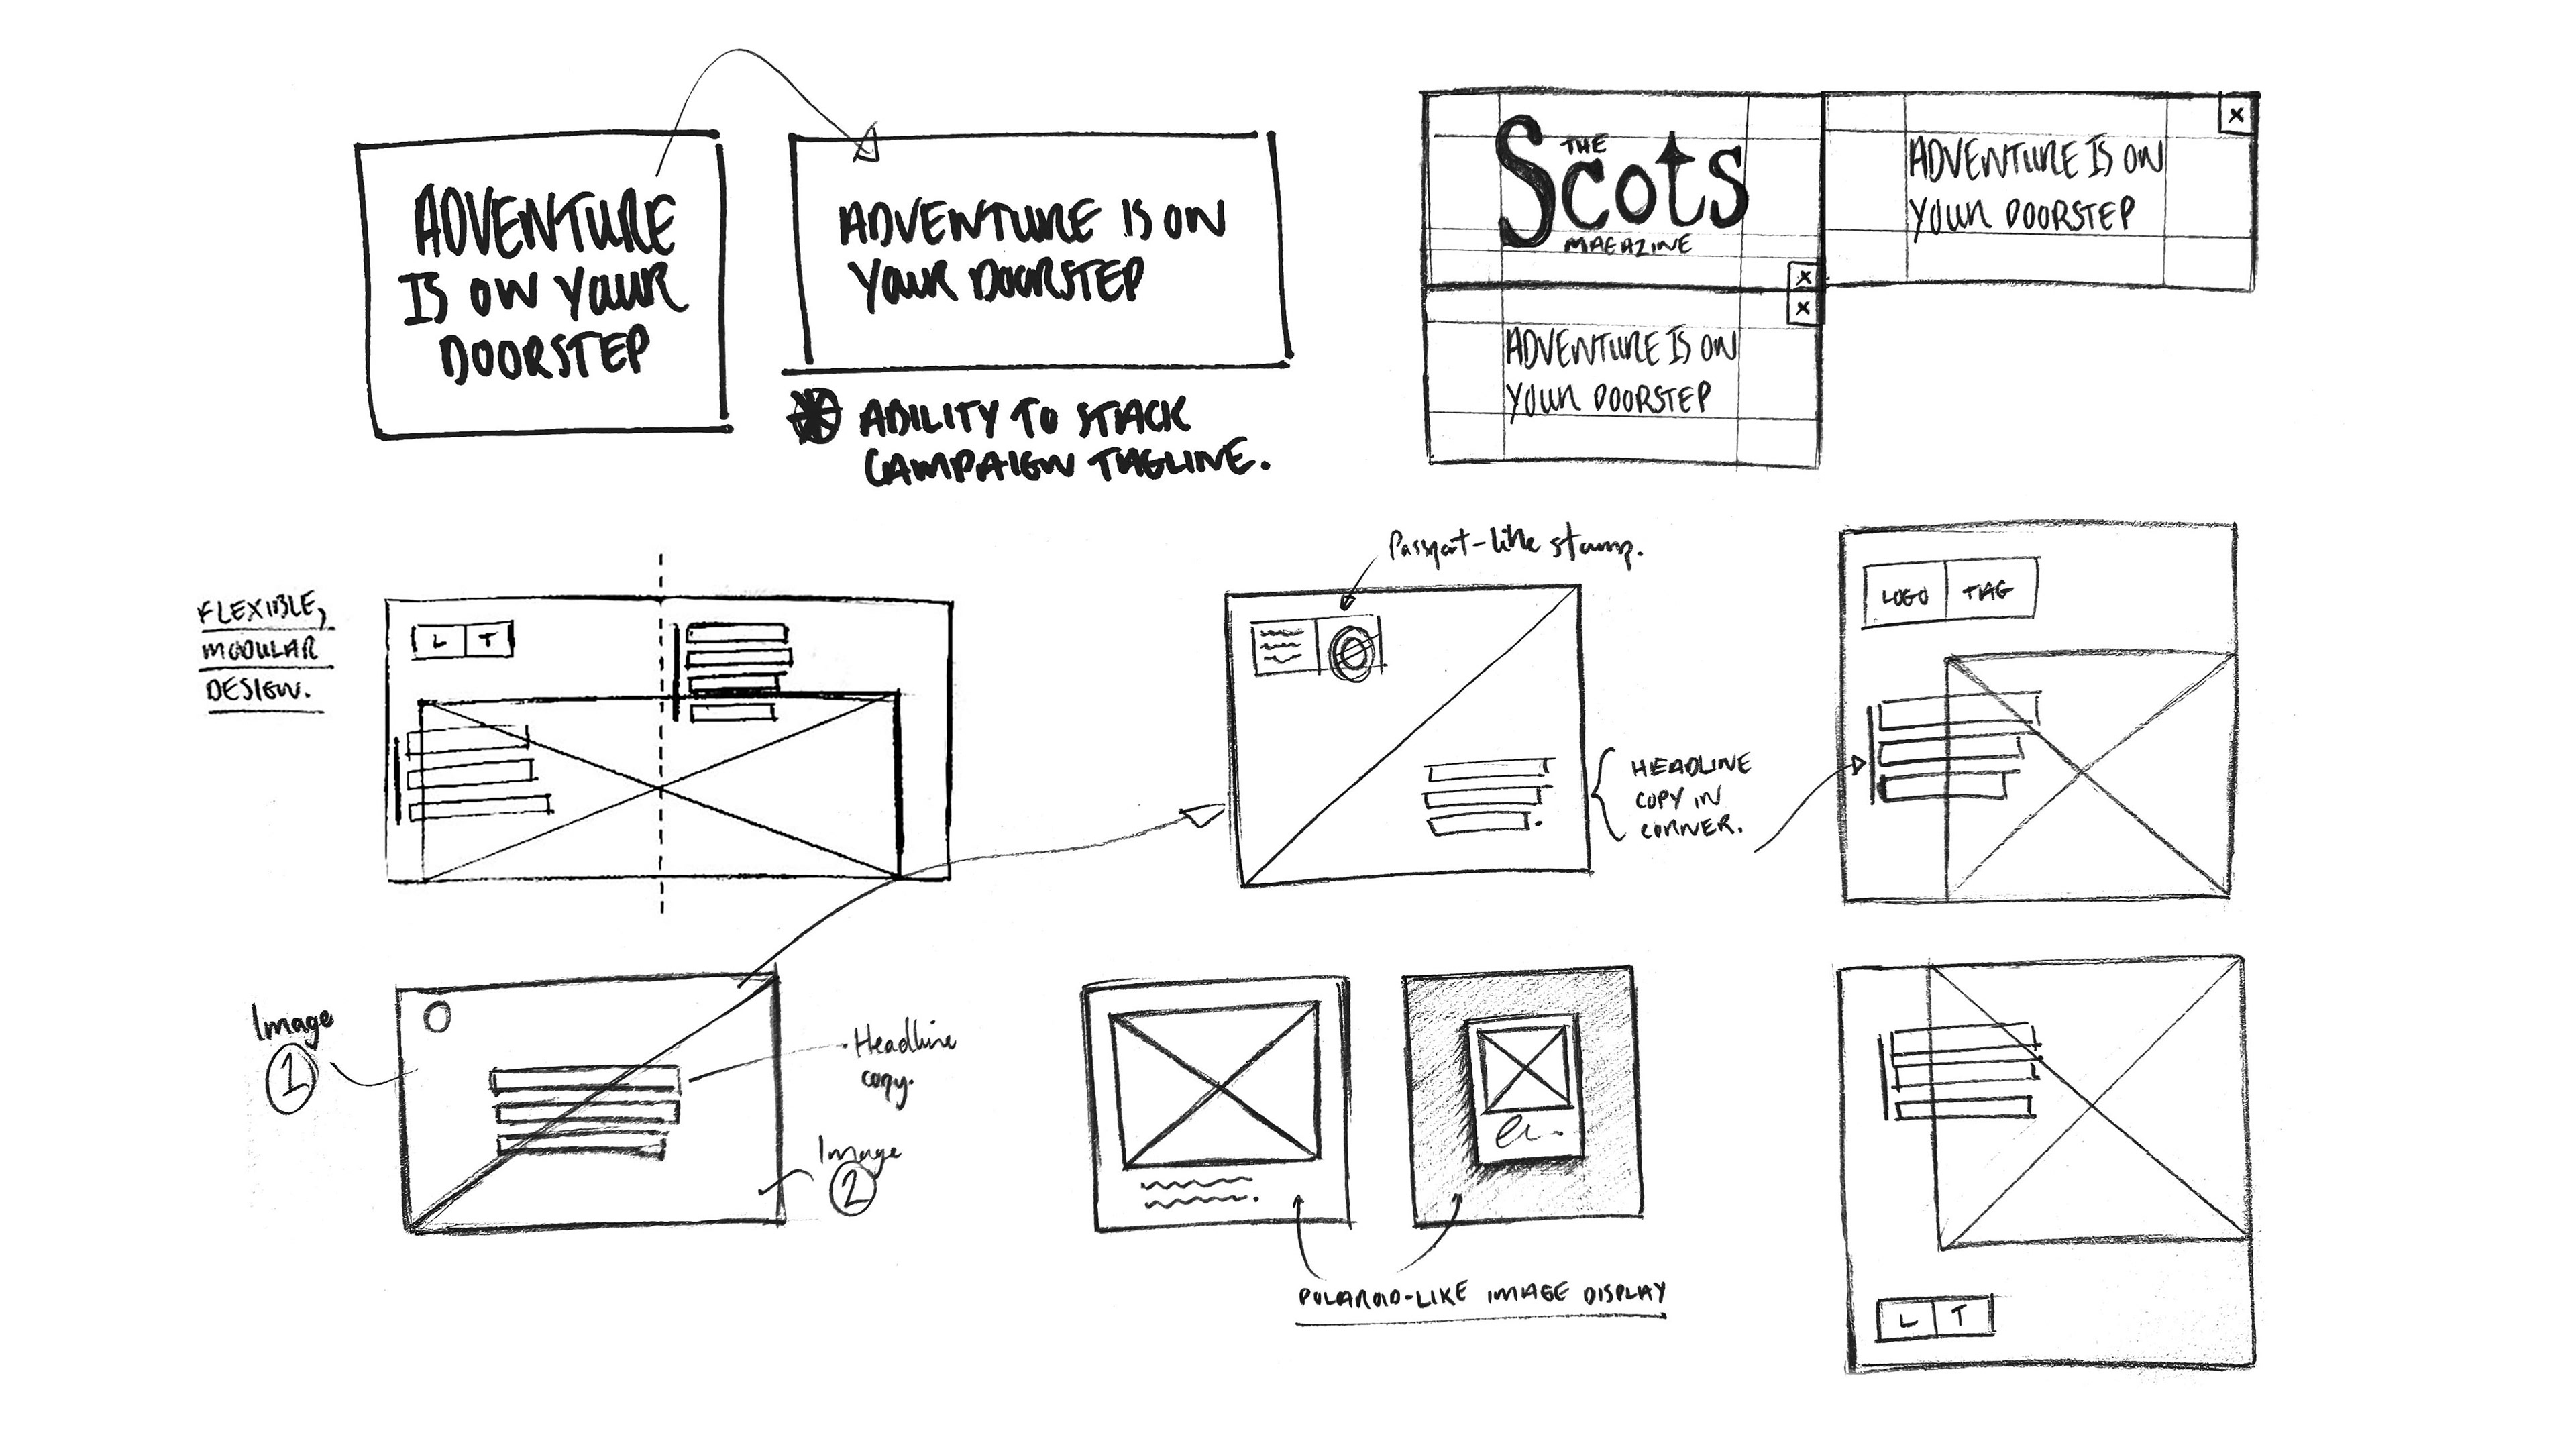 ADVENTURE
IS ON YOUR
DOORSTEP
ADVENTURE IS ON
YOUR DOORSTEP
ABILITY TO STACK
CAMPAIGN TAGLINE.
THE
Scots
MAGAZINE
X
X
ADVENTURE IS ON
YOUR DOORSTEP
X
ADVENTURE IS ON
YOUR DOORSTEP
FLEXIBLE,
MODULAR
DESIGN.
L T
Passport-like stamp.
HEADLINE
COPY IN
CORNER.
LOGO TAG
Image
1
Headline
copy.
Image
2
POLAROID-LIKE IMAGE DISPLAY
L T